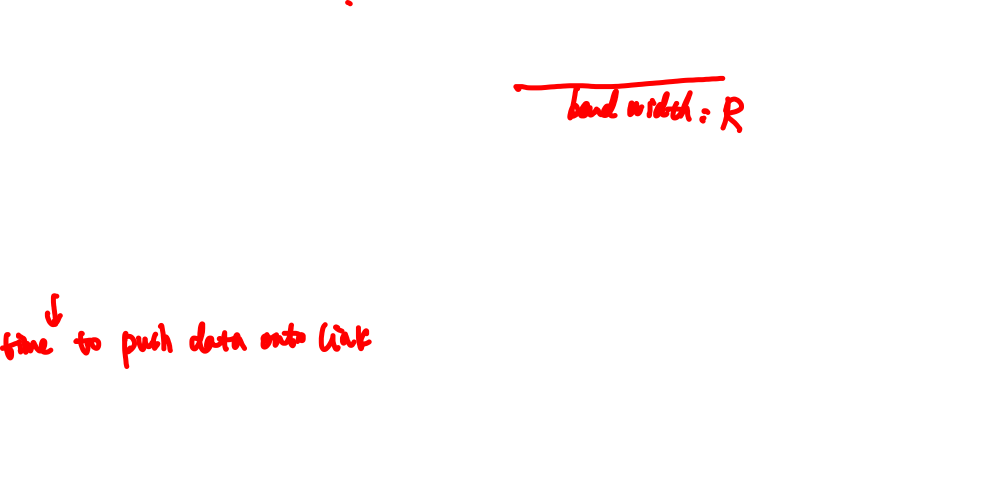 bandwidth: R
time to push data onto link